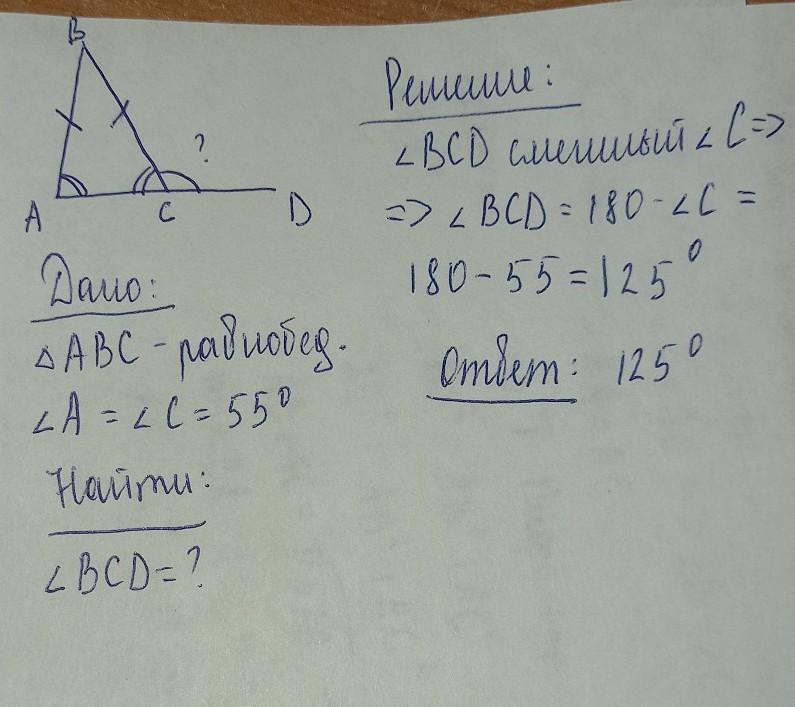 B
?
A
C
D
Дано:
△ABC - равнобед.
∠A = ∠C = 55°
Найти:
∠BCD = ?
Решение:
∠BCD смежный ∠C =>
=> ∠BCD = 180 - ∠C =
180 - 55 = 125°
Ответ: 125°